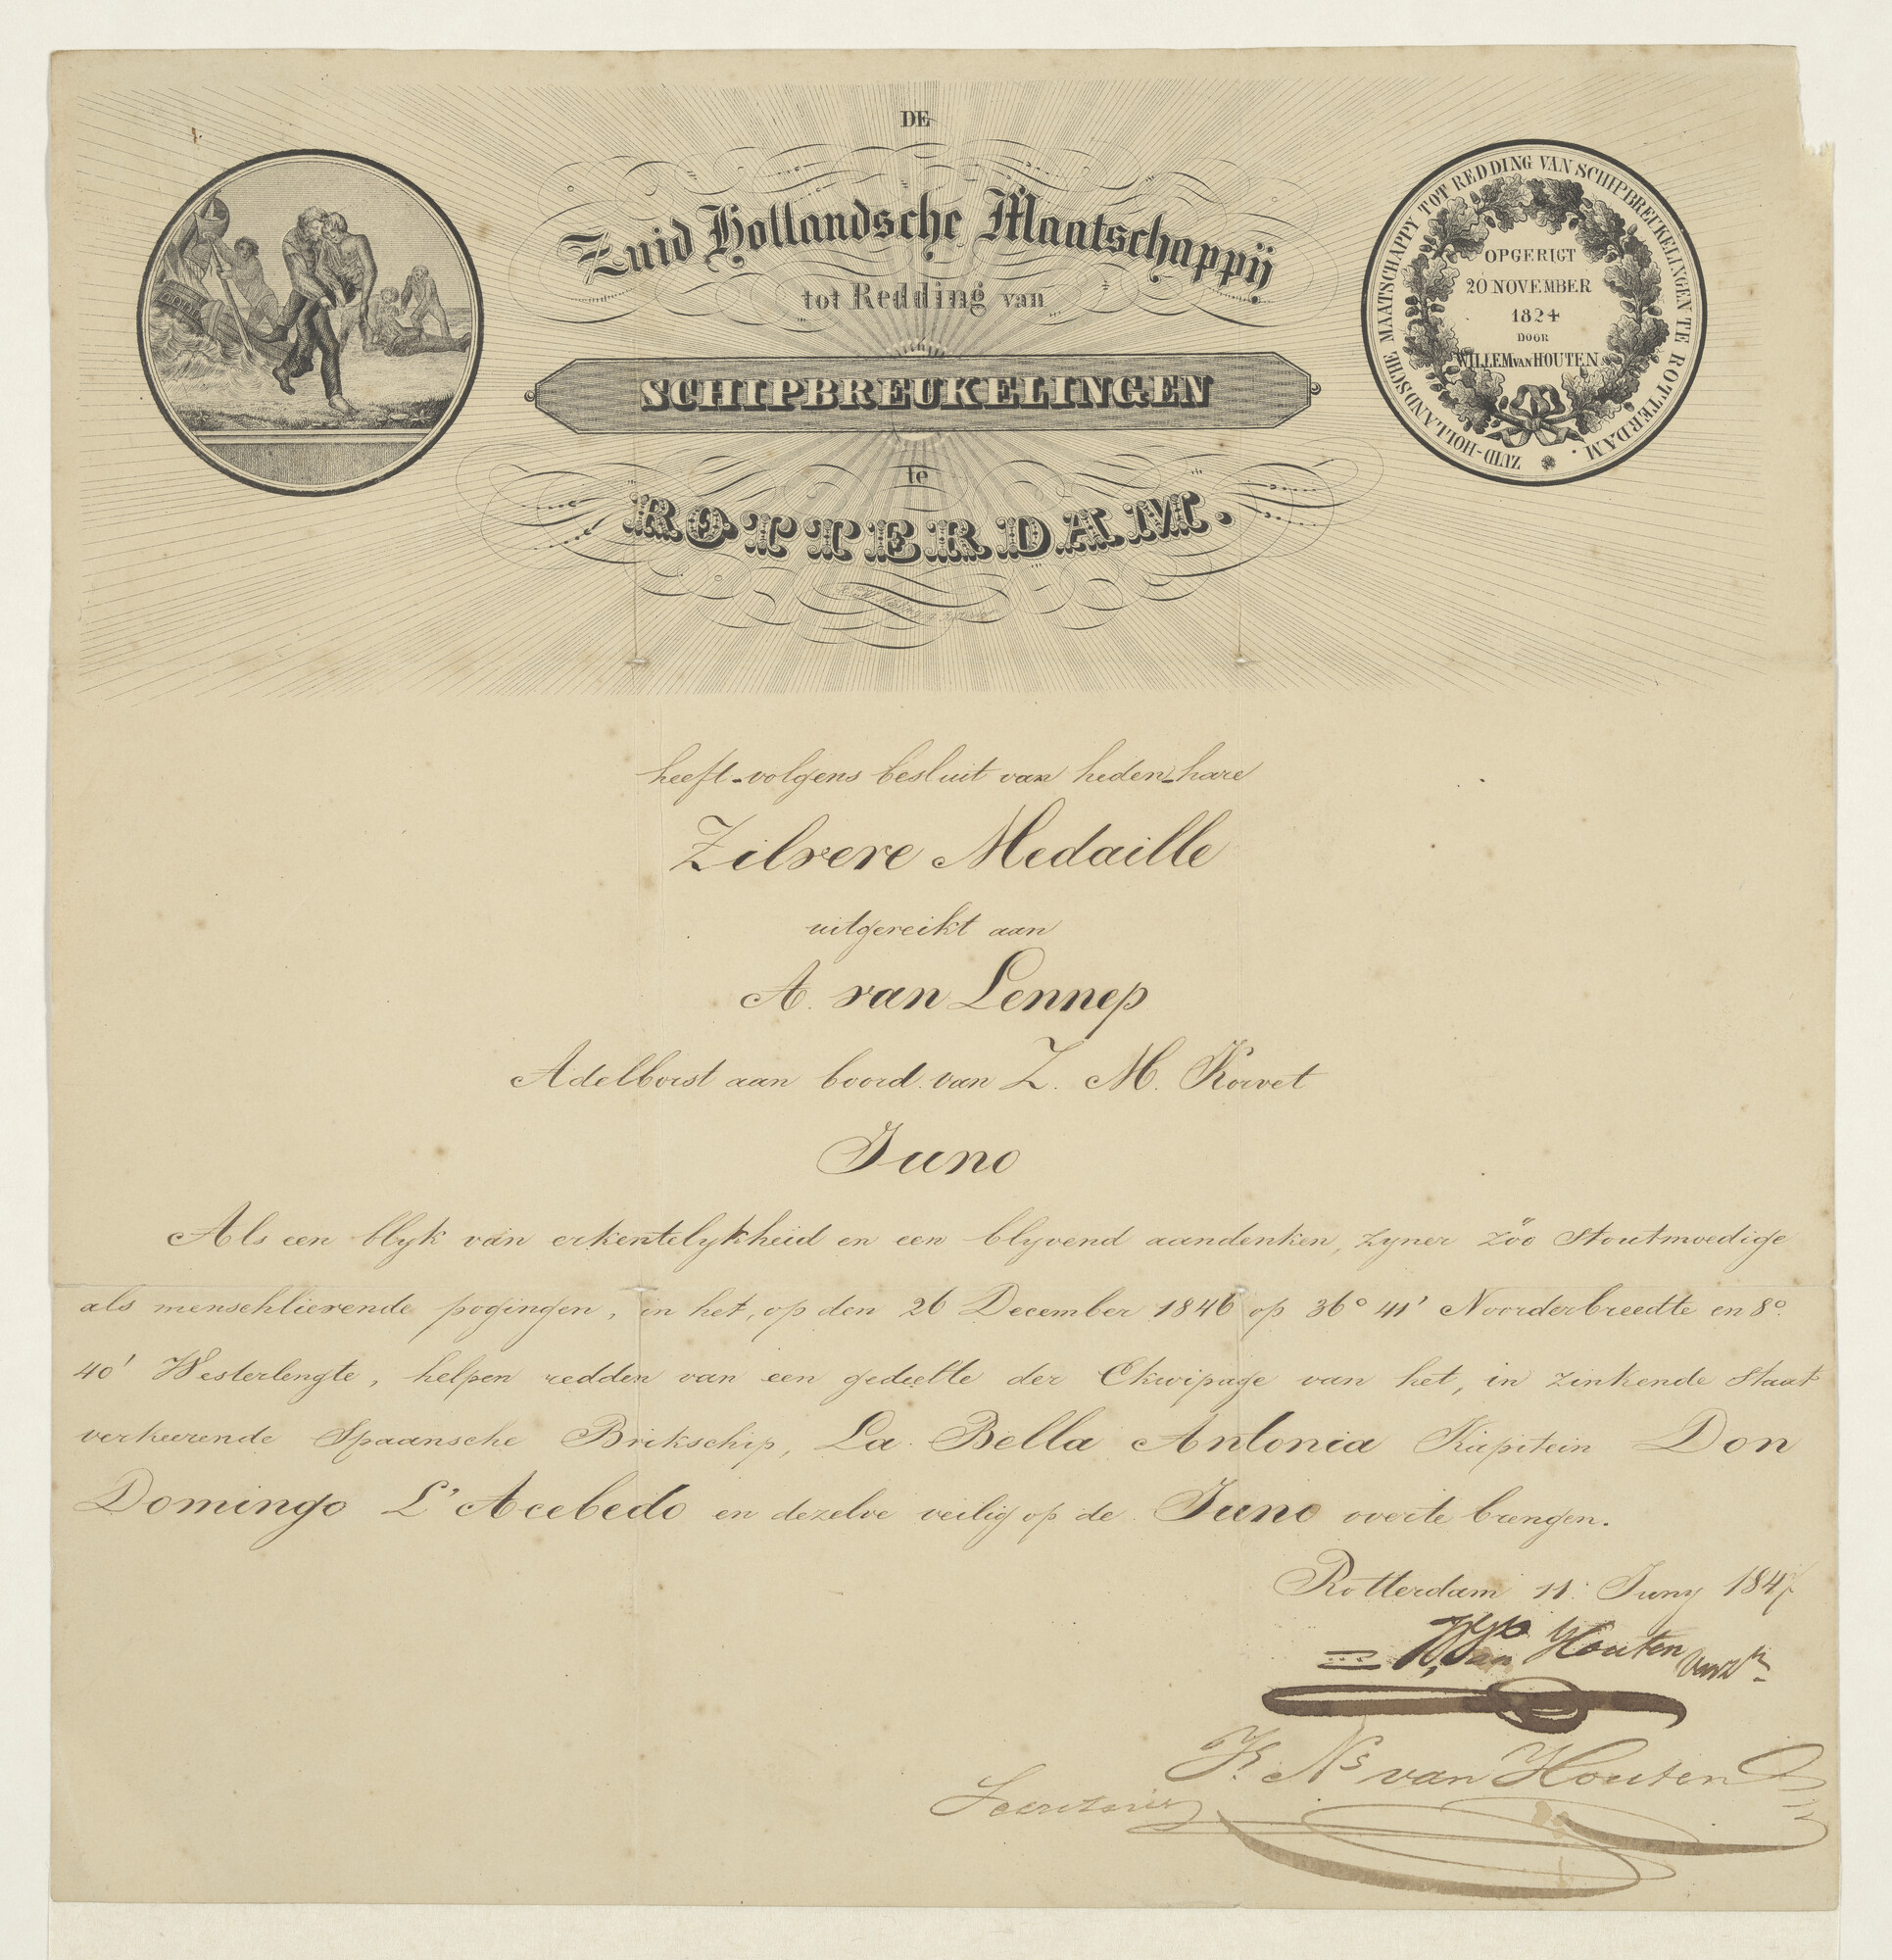 DE
Zuid Hollandsche Maatschappij
tot Redding van
SCHIPBREUKELINGEN
te
ROTTERDAM.
ZUID-HOLLANDSCHE MAATSCHAPPY TOT REDDING VAN SCHIPBREUKELINGEN TE ROTTERDAM.
OPGERIGT
20 NOVEMBER
1824
DOOR
WILLEM VAN HOUTEN
heeft volgens besluit van heden hare
Zilvere Medaille
uitgereikt aan
A. van Lennep
Adelborst aan boord van Z. M. Korvet
Juno
Als een blyk van erkentelykheid en een blyvend aandenken, zyner zöo Stoutmoedige
als menschlievende pogingen, in het, op den 26 December 1846 op 36° 41' Noorderbreedte en 8°.
40' Westerlengte, helpen redden van een gedeelte der Ekwipage van het, in zinkende Staat
verkeerende Spaansche Brikschip, La Bella Antonia Kapitein Don
Domingo L'Acebedo en dezelve veilig op de Juno overte brengen.
Rotterdam 11. Juny 1847
van Houten
K. Ns van Houten
Secretaris